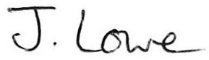 J. Lowe